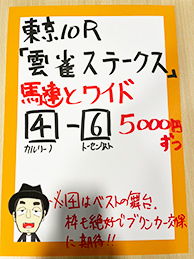 東京10R
「雲雀ステークス」
馬連とワイド
4-6 5000円
ずつ
カルリーノ
必図はベストの舞台。
枠も絶好でブリンカー効果
に期待!!